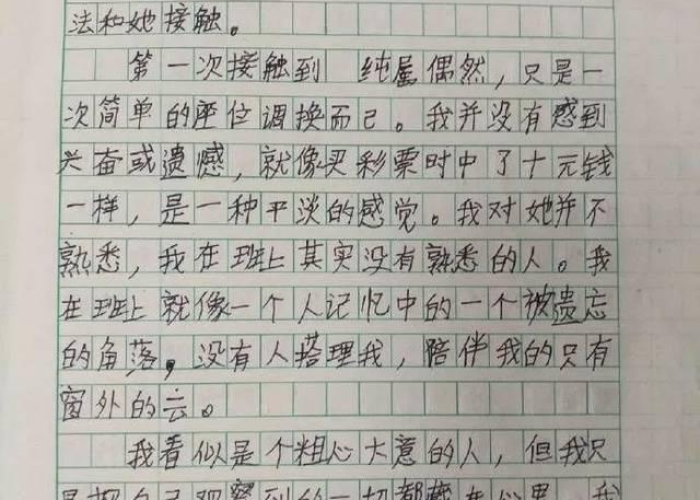 法和她接触。
第一次接触到 纯属偶然，只是一
次简单的座位调换而已。我并没有感到
兴奋或遗憾，就像买彩票时中了十元钱
一样，是一种平淡的感觉。我对她并不
熟悉，我在班上其实没有熟悉的人。我
在班上就像一个人记忆中的一个被遗忘
的角落，没有人搭理我，陪伴我的只有
窗外的云。
我看似是个粗心大意的人，但我只
是把自己观察到的一切都藏在心里，我